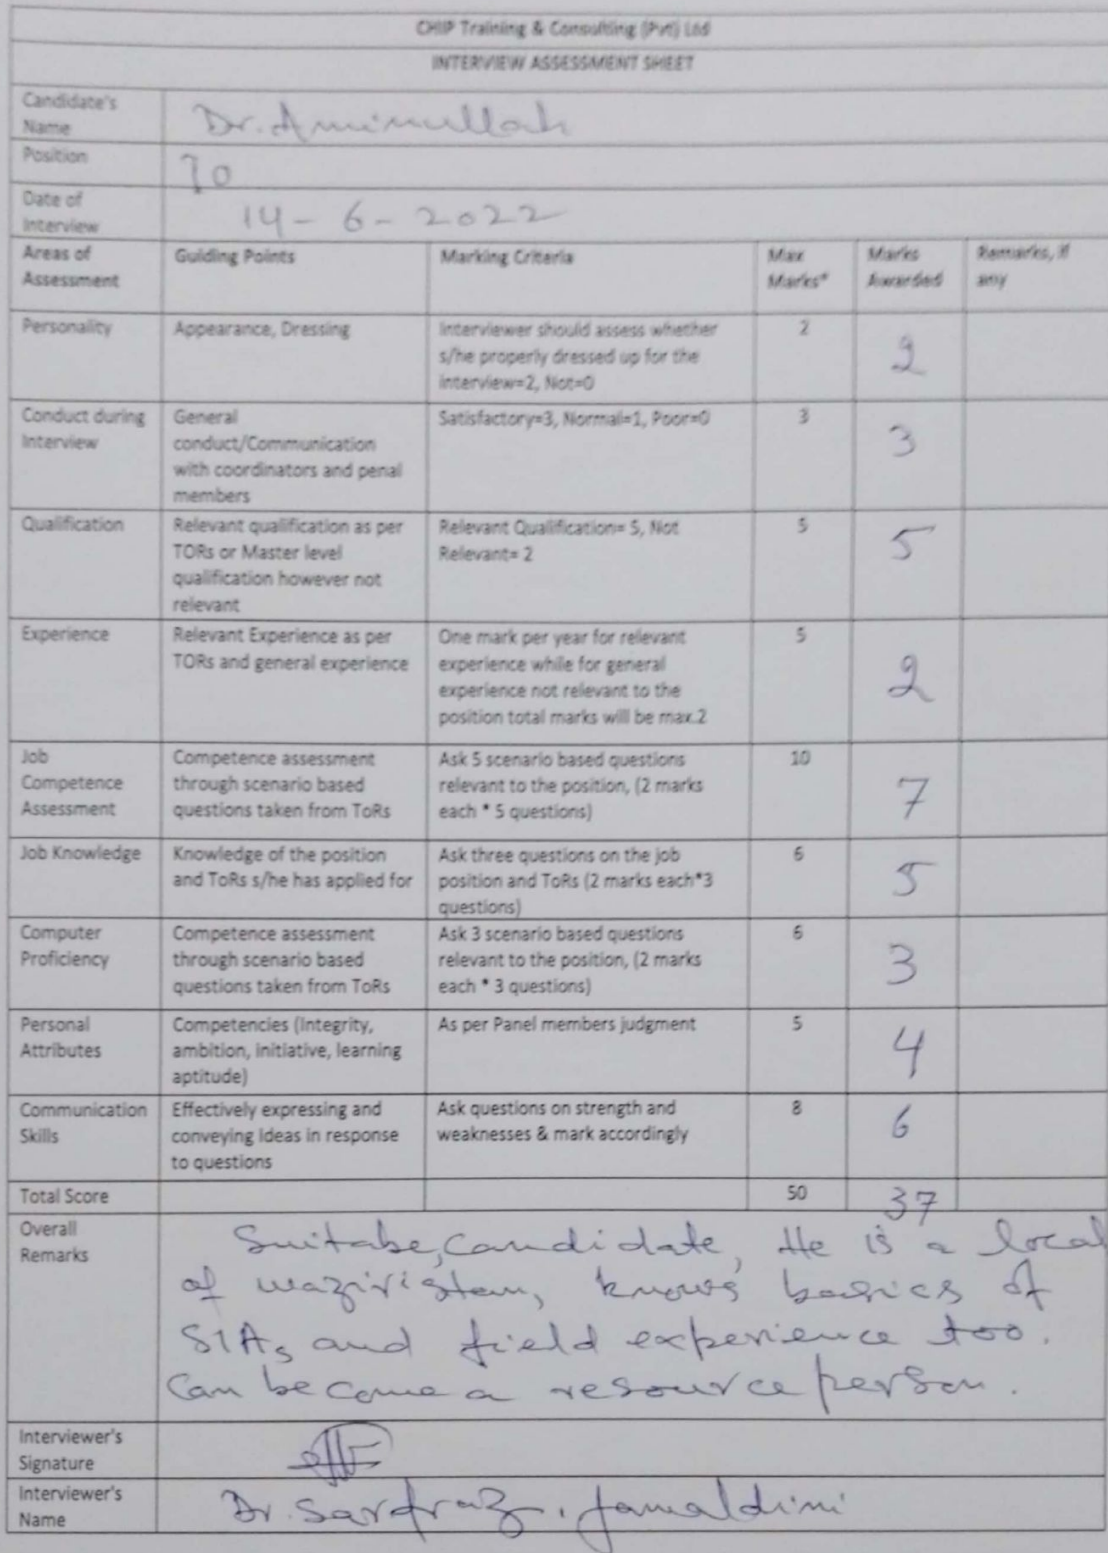 CHIP Training & Consulting (Pvt) Ltd
INTERVIEW ASSESSMENT SHEET
Candidate's Name
Dr. Aminullah
Position
Date of Interview
14-6-2022
Areas of Assessment
Guiding Points
Marking Criteria
Max Marks*
Marks Awarded
Remarks, if any
Personality
Appearance, Dressing
Interviewer should assess whether
s/he properly dressed up for the
interview=2, Not=0
2
2
Conduct during
Interview
General
conduct/Communication
with coordinators and penal
members
Satisfactory=3, Normal=1, Poor=0
3
3
Qualification
Relevant qualification as per
TORs or Master level
qualification however not
relevant
Relevant Qualification= 5, Not
Relevant= 2
5
5
Experience
Relevant Experience as per
TORs and general experience
One mark per year for relevant
experience while for general
experience not relevant to the
position total marks will be max.2
5
2
Job
Competence
Assessment
Competence assessment
through scenario based
questions taken from ToRs
Ask 5 scenario based questions
relevant to the position, (2 marks
each * 5 questions)
10
7
Job Knowledge
Knowledge of the position
and ToRs s/he has applied for
Ask three questions on the job
position and ToRs (2 marks each*3
questions)
6
5
Computer
Proficiency
Competence assessment
through scenario based
questions taken from ToRs
Ask 3 scenario based questions
relevant to the position, (2 marks
each * 3 questions)
6
3
Personal
Attributes
Competencies (Integrity,
ambition, initiative, learning
aptitude)
As per Panel members judgment
5
4
Communication
Skills
Effectively expressing and
conveying ideas in response
to questions
Ask questions on strength and
weaknesses & mark accordingly
8
6
Total Score
50
37
Overall
Remarks
Suitabe, candidate, He is a local
of waziristan, knows basics of
SIAs and field experience too.
Can become a resource person.
Interviewer's
Signature
Interviewer's
Name
Dr. Sarfraz. Jamaldini